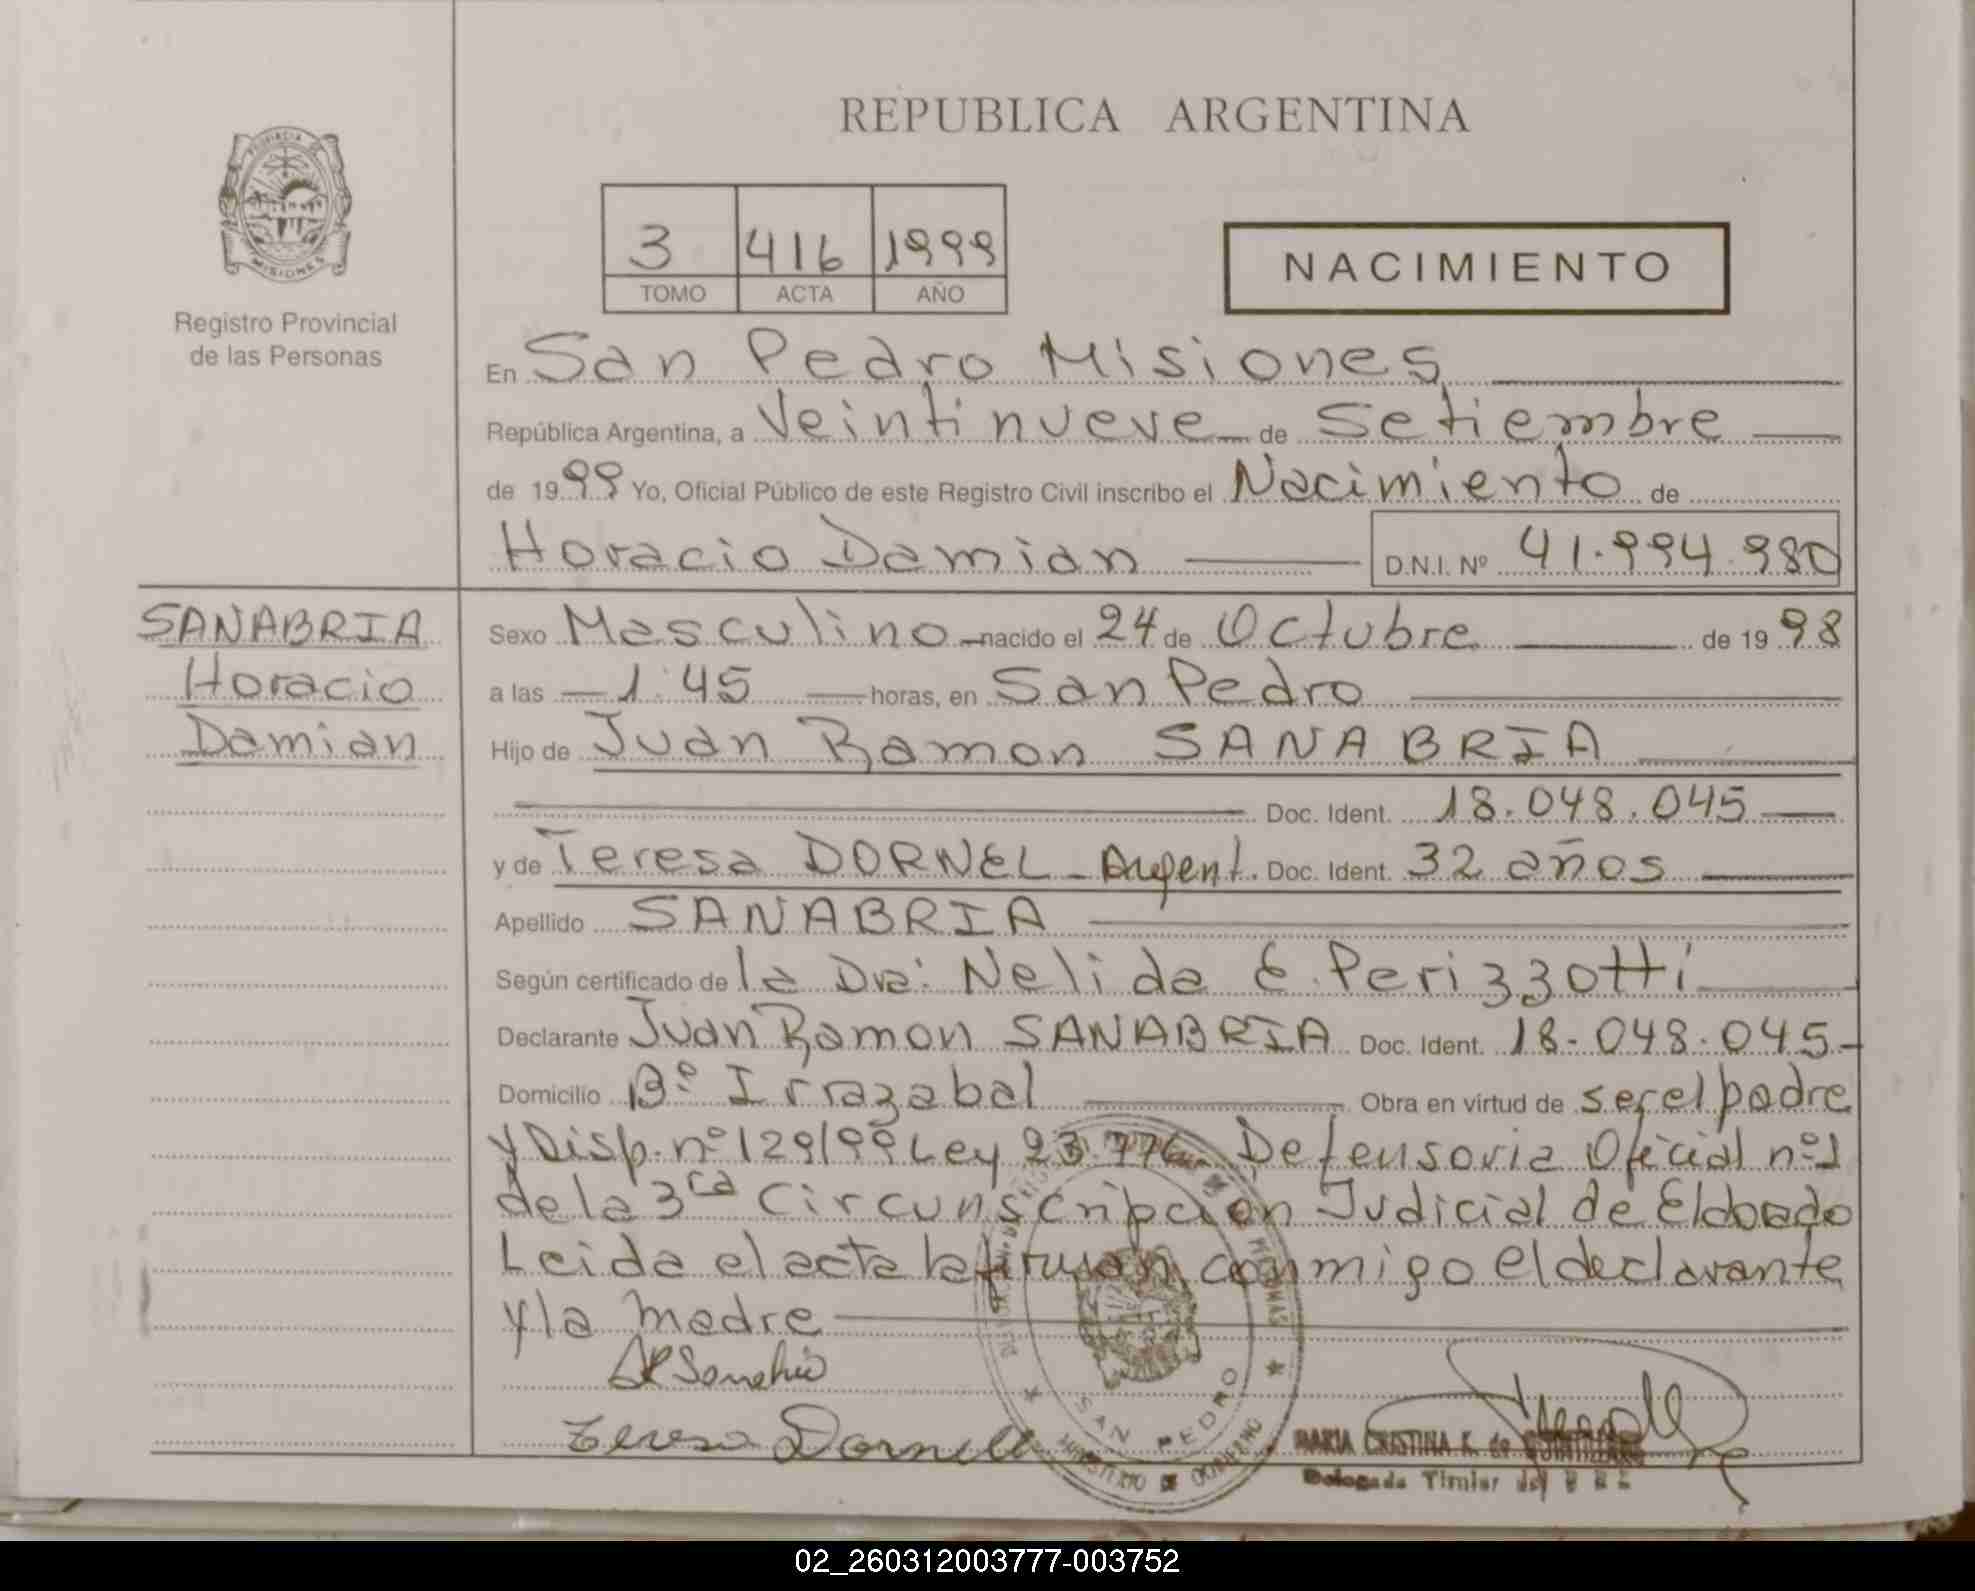 REPUBLICA ARGENTINA
PROVINCIA DE
MISIONES
Registro Provincial
de las Personas
3 416 1999
TOMO ACTA AÑO
NACIMIENTO
En San Pedro Misiones
República Argentina, a Veintinueve de Setiembre
de 1999 Yo, Oficial Público de este Registro Civil inscribo el Nacimiento de
Horacio Damian D.N.I. Nº 41.994.980
SANABRIA
Horacio
Damian
Sexo Masculino nacido el 24 de Octubre de 1998
a las 1:45 horas, en San Pedro
Hijo de Juan Ramon SANABRIA
Doc. Ident. 18.048.045
y de Teresa DORNEL - Argent. Doc. Ident. 32 años
Apellido SANABRIA
Según certificado de la Dra: Nelida E. Perizzotti
Declarante Juan Ramon SANABRIA Doc. Ident. 18.048.045-
Domicilio Bº Irrazabal Obra en virtud de ser el padre
y Disp. nº 129/99 Ley 23.776 Defensoria Oficial nº1
de la 3ra Circunscripcion Judicial de Eldorado
Leida el acta la firman conmigo el declarante
y la madre
Teresa Dornel
SAN PEDRO
MINISTERIO DE GOBIERNO
MARIA CRISTINA K. de
Delegada Titular del
02_260312003777-003752